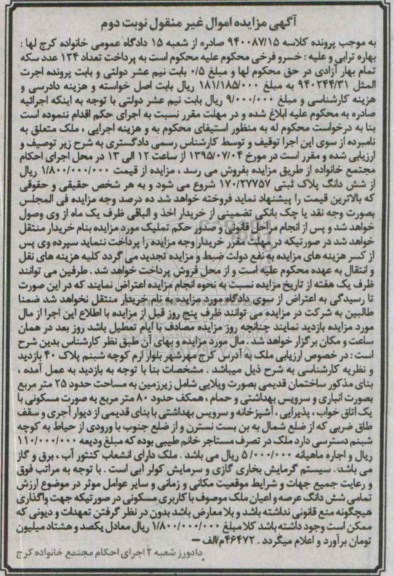 آگهی مزایده اموال غیر منقول نوبت دوم
به موجب پرونده کلاسه ۹۴۰۰۸۷/۱۵ صادره از شعبه ۱۵ دادگاه عمومی خانواده کرج لها :
بهاره ترابی و علیه : خسرو فرخی محکوم علیه محکوم است به پرداخت تعداد ۱۲۴ عدد سکه
تمام بهار آزادی در حق محکوم لها و مبلغ ۰/۵ بابت نیم عشر دولتی و بابت پرونده اجرت
المثل ۹۴۰۲۴۴/۳۱ به مبلغ ۱۸۱/۱۸۵/۰۰۰ ریال بابت اصل خواسته و هزینه دادرسی و
هزینه کارشناسی و مبلغ ۹/۰۰۰/۰۰۰ ریال بابت نیم عشر دولتی با توجه به اینکه اجرائیه
صادره به محکوم علیه ابلاغ شده و در مهلت مقرر نسبت به اجرای حکم اقدام ننموده است
بنا به درخواست محکوم له به منظور استیفای محکوم به و هزینه اجرایی ، ملک متعلق به
نامبرده از سوی این اجرا توقیف و توسط کارشناس رسمی دادگستری به شرح زیر توصیف و
ارزیابی شده و مقرر است در مورخ ۱۳۹۵/۰۷/۰۴ از ساعت ۱۲ الی ۱۳ در محل اجرای احکام
مجتمع خانواده از طریق مزایده بفروش می رسد ، مزایده از قیمت ۱/۸۰۰/۰۰۰/۰۰۰ ریال
از شش دانگ پلاک ثبتی ۱۷۰/۲۷۷۵۷ شروع می شود و به هر شخص حقیقی و حقوقی
که بالاترین قیمت را پیشنهاد نماید فروخته خواهد شد ده درصد وجه مزایده فی المجلس
بصورت وجه نقد یا چک بانکی تضمینی از خریدار اخذ و الباقی ظرف یک ماه از وی وصول
خواهد شد و پس از انجام مراحل قانونی و صدور حکم تملیک مورد مزایده بنام خریدار منتقل
خواهد شد در صورتیکه در مهلت مقرر خریدار وجه مزایده را پرداخت ننماید سپرده وی پس
از کسر هزینه های مزایده به نفع دولت ضبط و مزایده تجدید می گردد کلیه هزینه های نقل
و انتقال به عهده محکوم علیه است و از محل فروش پرداخت خواهد شد . طرفین می توانند
ظرف یک هفته از تاریخ مزایده نسبت به نحوه انجام مزایده اعتراض نمایند که در این صورت
تا رسیدگی به اعتراض از سوی دادگاه مورد مزایده به نام خریدار منتقل نخواهد شد ضمنا
طالبین به شرکت در مزایده می توانند ظرف پنج روز قبل از مزایده با اطلاع این اجرا از مال
مورد مزایده بازدید نمایند چنانچه روز مزایده مصادف با ایام تعطیل باشد روز بعد در همان
ساعت و مکان برگزار خواهد شد . مال مورد مزایده و بهای آن طبق نظر کارشناس بدین شرح
است : در خصوص ارزیابی ملک به آدرس کرج مهرشهر بلوار ارم کوچه شبنم پلاک ۴۰ بازدید
و نظریه کارشناسی به شرح ذیل میباشد . مشخصات بنا با توجه به بازدید به عمل آمده ،
بنای مذکور ساختمان قدیمی بصورت ویلایی شامل زیرزمین به مساحت حدود ۲۵ متر مربع
بصورت انباری و سرویس بهداشتی و حمام ، همکف حدود ۸۰ متر مربع به صورت مسکونی با
یک اتاق خواب ، پذیرایی ، آشپزخانه و سرویس بهداشتی با بنای قدیمی از دیوار آجری و سقف
طاق ضربی که از ضلع شمال به بن بست نسترن و از ضلع جنوب با ورودی از حیاط به کوچه
شبنم دسترسی دارد ملک در تصرف مستاجر خانم طیبی بوده که مبلغ ودیعه ۱۱۰/۰۰۰/۰۰۰
ریال و اجاره ماهیانه ۵/۰۰۰/۰۰۰ ریال می باشد . ملک دارای انشعاب کنتور آب ، برق و گاز
می باشد. سیستم گرمایش بخاری گازی و سرمایش کولر آبی است . با توجه به مراتب فوق
و رعایت جمیع جهات و شرایط موقعیت مکانی و زمانی و سایر عوامل موثر در موضوع ارزش
تمامی شش دانگ عرصه و اعیان ملک موصوف با کاربری مسکونی در صورتیکه جهت واگذاری
هیچگونه منع قانونی نداشته باشد و بلا معارض باشد بدون در نظر گرفتن تعهدات و دیونی که
ممکن است وجود داشته باشد کلا مبلغ ۱/۸۰۰/۰۰۰/۰۰۰ ریال معادل یکصد و هشتاد میلیون
تومان برآورد و اعلام میگردد . ۴۶۴۷۲/م الف —
دادورز شعبه ۲ اجرای احکام مجتمع خانواده کرج